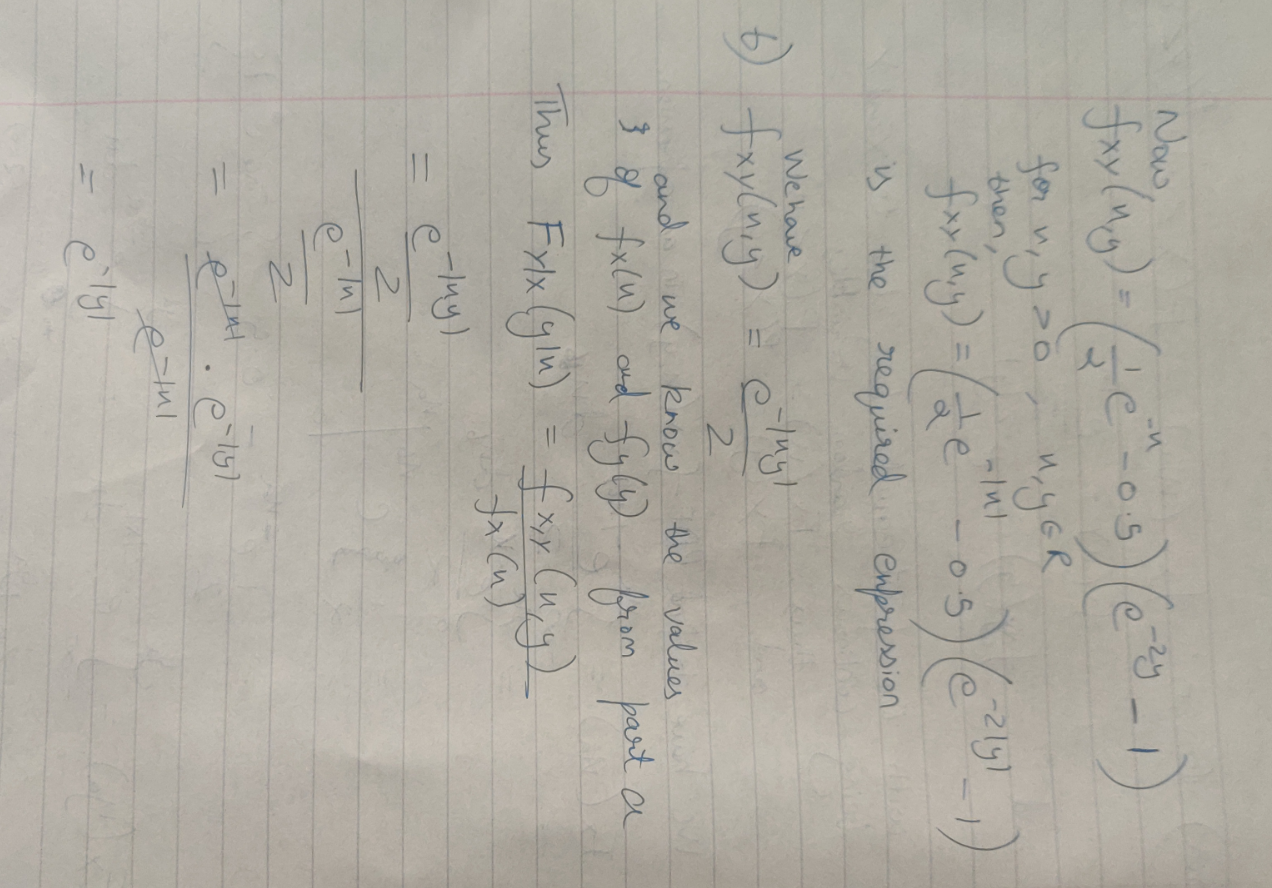 Now,
fxy(n,y) = (1/2 e^-n - 0.5) (e^-2y - 1)
for n,y > 0, n,y ∈ R
then,
fxy(n,y) = (1/2 e^-|n| - 0.5) (e^-2|y| - 1)
is the required enpression
b) We have
fxy(n,y) = e^-|ny| / 2
and we know the values
of fx(n) and fy(y) from part a
Thus Fy|x(y|n) = fx,y(n,y) / fx(n)
= e^-|ny| / 2
e^-|n| / 2
= e^-|n| . e^-|y|
e^-|n|
= e^-|y|